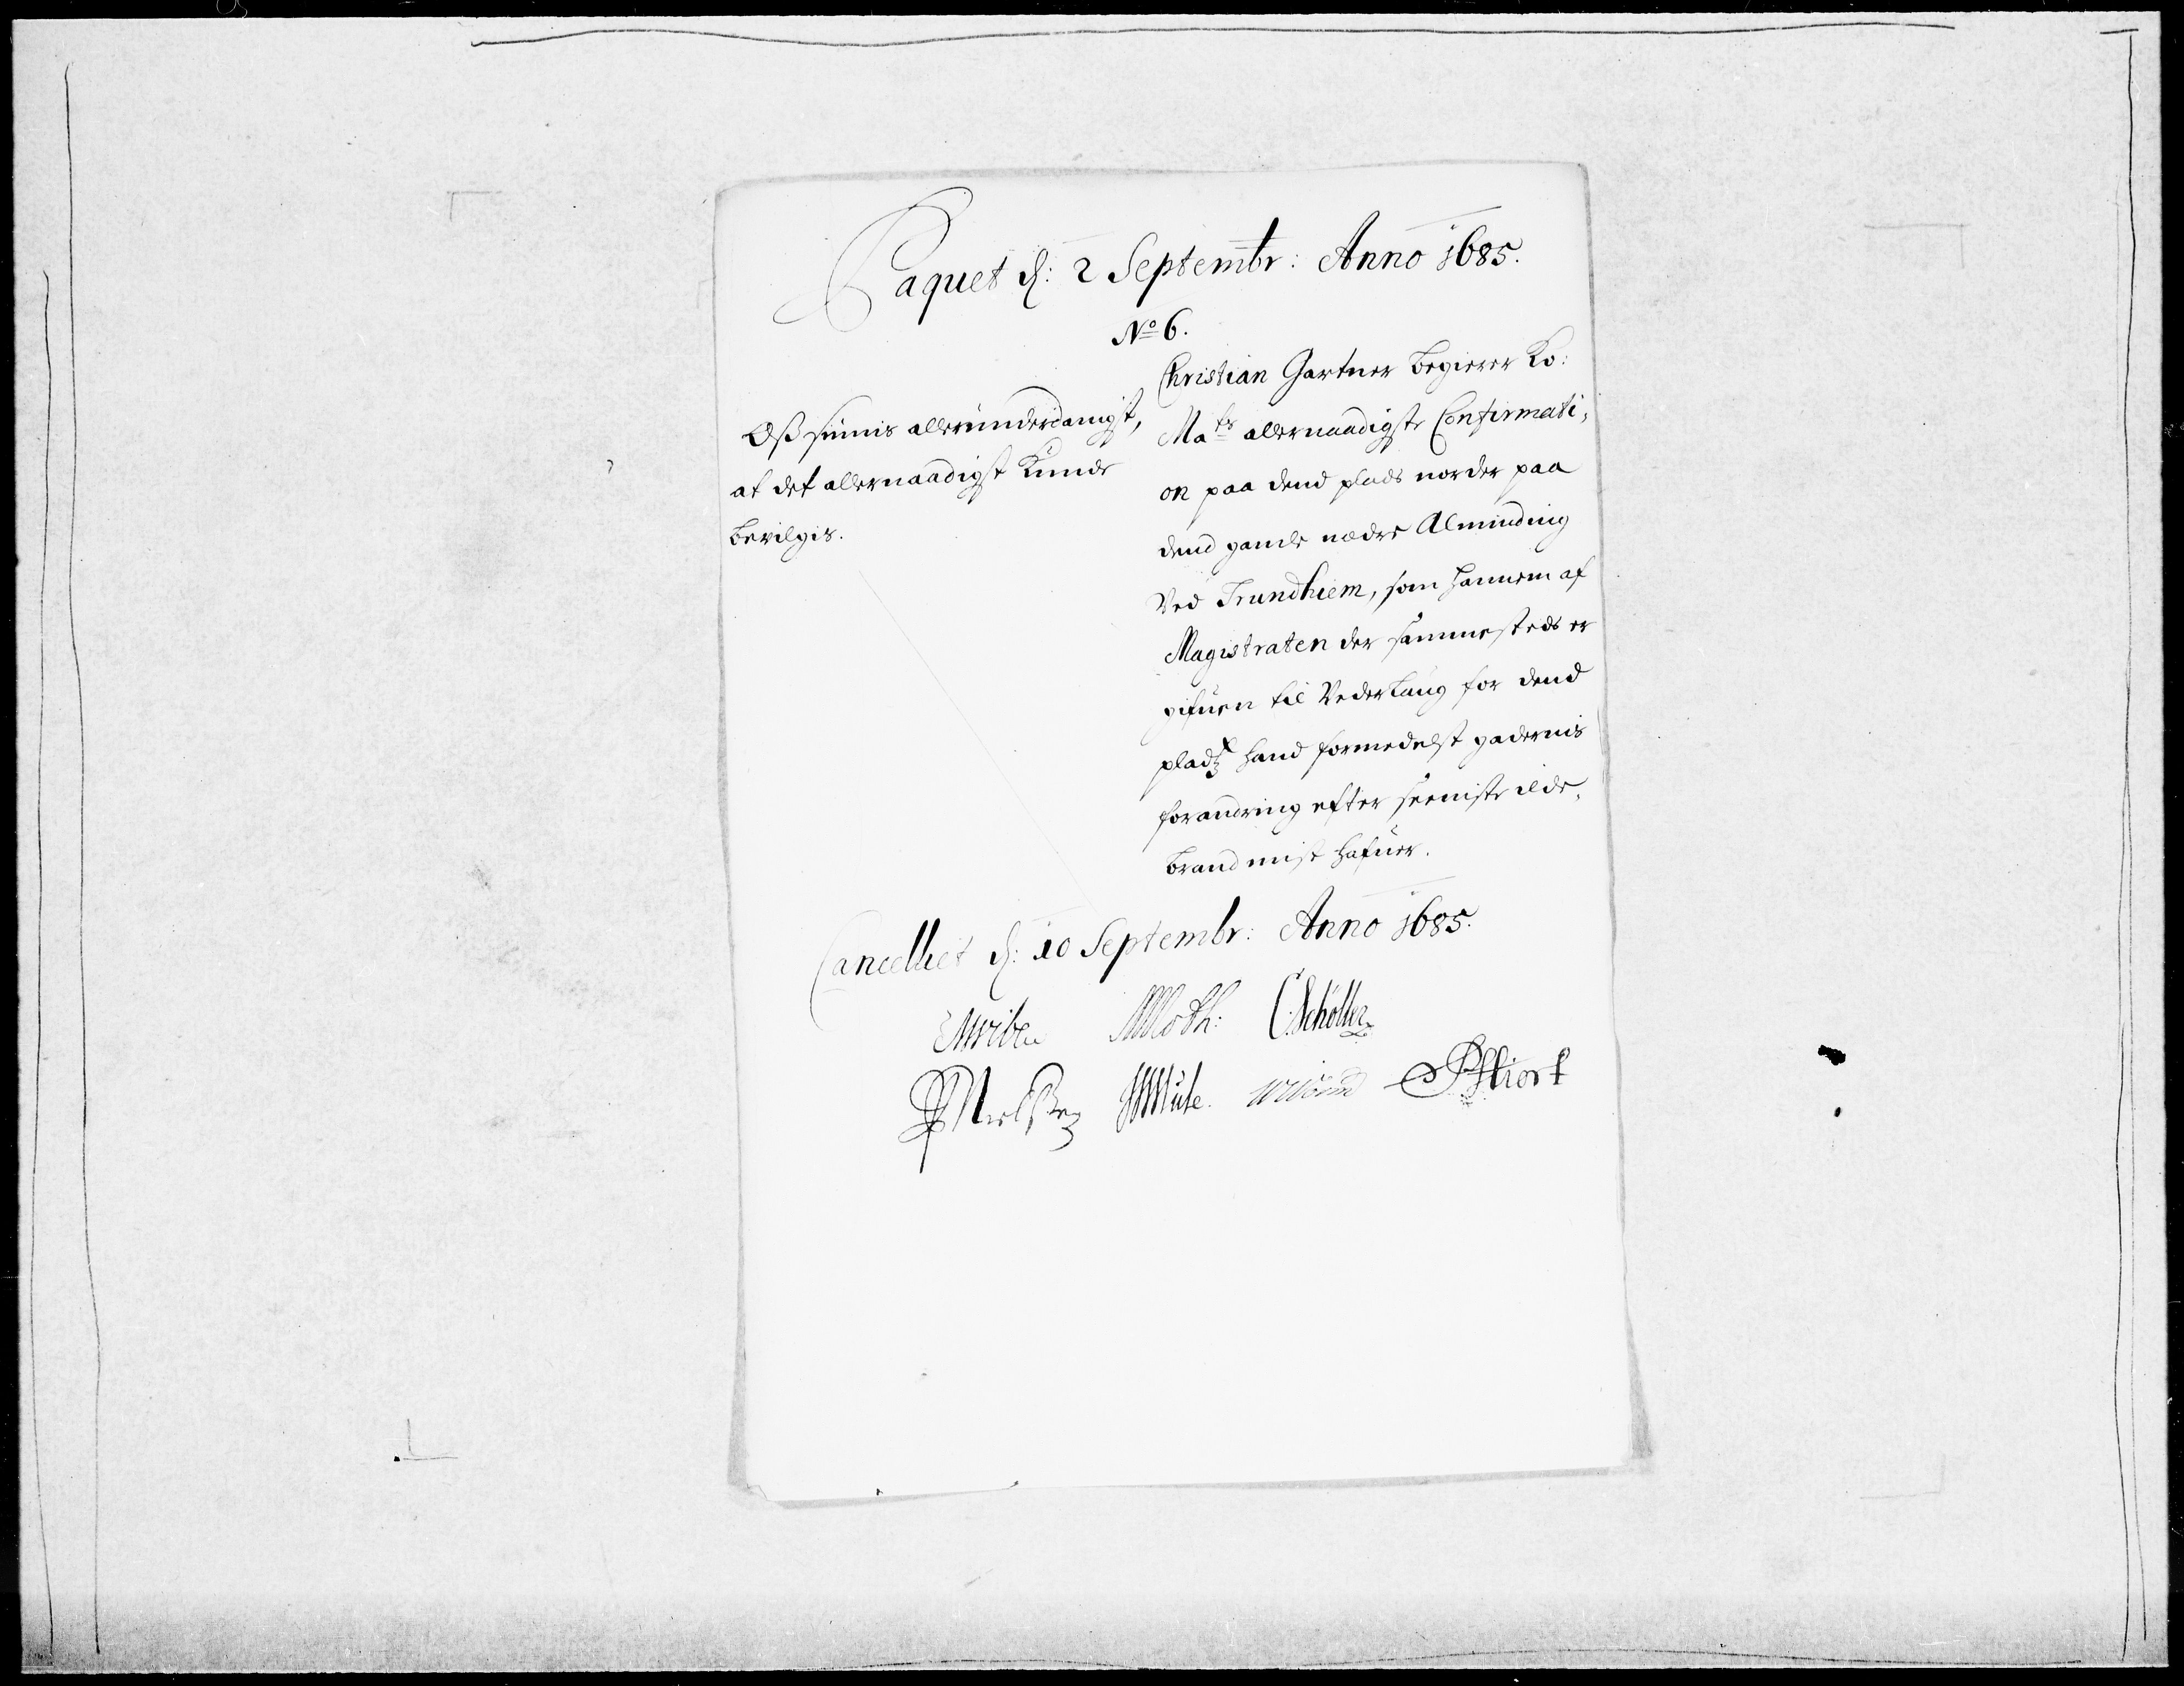 Paquet d: 2 Septembr: Anno 1685.
No 6.
Oß siunis allerunderdanigst,
at det allernaadigst kunde
bevilgis.
Christian Gartner begierer Ko:
Mats allernaadigste Confirmati,
on paa dend plads norder paa
dend gamle nedre Alminding
Ved Trundhiem, som hannem af
Magistraten der sammesteds er
gifuen til Vederlaug for dend
pladtz hand formedelst gadernis
forandring efter seeniste ilde,
brand mist hafuer.
Cancelliet d: 10 Septembr: Anno 1685.
Wibe MMoth: C. Schöller
PNielßen Mule. PHiort